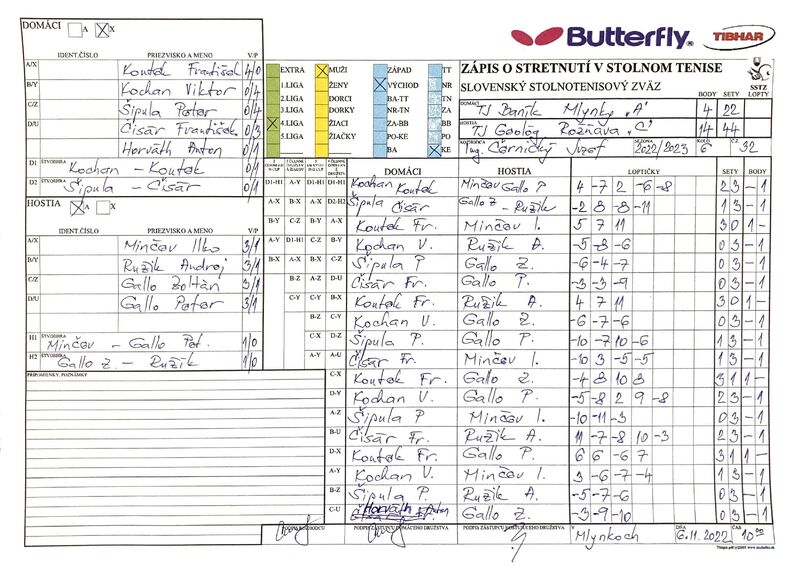 DOMÁCI A X
Butterfly. TIBHAR
IDENT.ČÍSLO PRIEZVISKO A MENO V/P
A/X Koutek František 4/0
B/Y Kochan Viktor 0/4
C/Z Šipula Peter 0/4
D/U Čisár František 0/3
Horváth Anton 0/1
D1 ŠTVORHRA Kochan - Koutek 0/1
D2 ŠTVORHRA Šipula - Čisár 0/1
HOSTIA A X
IDENT.ČÍSLO PRIEZVISKO A MENO V/P
A/X Minčev Ilko 3/1
B/Y Ružik Andrej 3/1
C/Z Gallo Zoltán 3/1
D/U Gallo Peter 3/1
H1 ŠTVORHRA Minčev - Gallo Pet. 1/0
H2 ŠTVORHRA Gallo Z - Ružik 1/0
PRIPOMIENKY, POZNÁMKY
EXTRA MUŽI ZÁPAD TT
1.LIGA ŽENY VÝCHOD NR
2.LIGA DORCI BA-TT TN
3.LIGA DORKY NR-TN ZA
4.LIGA ŽIACI ZA-BB BB
5.LIGA ŽIAČKY PO-KE PO
BA KE
ZÁPIS O STRETNUTÍ V STOLNOM TENISE
SLOVENSKÝ STOLNOTENISOVÝ ZVÄZ
SSTZ
BODY SETY LOPTY
DOMÁCI TJ Baník Mlynky „A“ 4 22
HOSTIA TJ Geológ Rožňava „C“ 14 44
ROZHODCA Ing. Černický Jozef SEZÓNA 2022/2023 KOLO 6 Č.Z. 32
DOMÁCI HOSTIA LOPTIČKY SETY BODY
D1-H1 A-Y D1-H1 D1-H1 Kochan Koutek Minčev Gallo P. 4 -7 2 -6 -8 2 3 - 1
A-X B-X A-X D2-H2 Šipula Čisár Gallo Z - Ružik -2 8 -8 -11 1 3 - 1
B-Y C-Z B-Y A-X Koutek Fr. Minčev I. 5 7 11 3 0 1 -
A-Y D1-H1 C-Z B-Y Kochan V. Ružik A. -5 -8 -6 0 3 - 1
B-X A-X B-X C-Z Šipula P Gallo Z. -6 -4 -7 0 3 - 1
B-Z A-Z D-U Čisár Fr. Gallo P. -3 -3 -9 0 3 - 1
C-Y C-Y B-X Koutek Fr. Ružik A. 4 7 11 3 0 1 -
B-Z C-Y Kochan V. Gallo Z. -6 -7 -6 0 3 - 1
C-X D-Z Šipula P. Gallo P. -10 -7 10 -6 1 3 - 1
A-Y A-U Čisár Fr. Minčev I. -10 3 -5 -5 1 3 - 1
C-X Koutek Fr. Gallo Z. -4 8 10 8 3 1 1 -
D-Y Kochan V. Gallo P. -5 -8 2 9 -8 2 3 - 1
A-Z Šipula P Minčev I. -10 -11 -3 0 3 - 1
B-U Čisár Fr. Ružik A. 11 -7 -8 10 -3 2 3 - 1
D-X Koutek Fr. Gallo P. 6 6 -6 7 3 1 1 -
A-Y Kochan V. Minčev I. 3 -6 -7 -4 1 3 - 1
B-Z Šipula P. Ružik A. -5 -7 -6 0 3 - 1
C-U Horváth Anton Gallo Z -3 -9 -10 0 3 - 1
PODPIS ROZHODCU PODPIS ZÁSTUPCU DOMÁCEHO DRUŽSTVA PODPIS ZÁSTUPCU HOSŤUJÚCEHO DRUŽSTVA V Mlynkoch DŇA 6.11.2022 ČAS 10 00